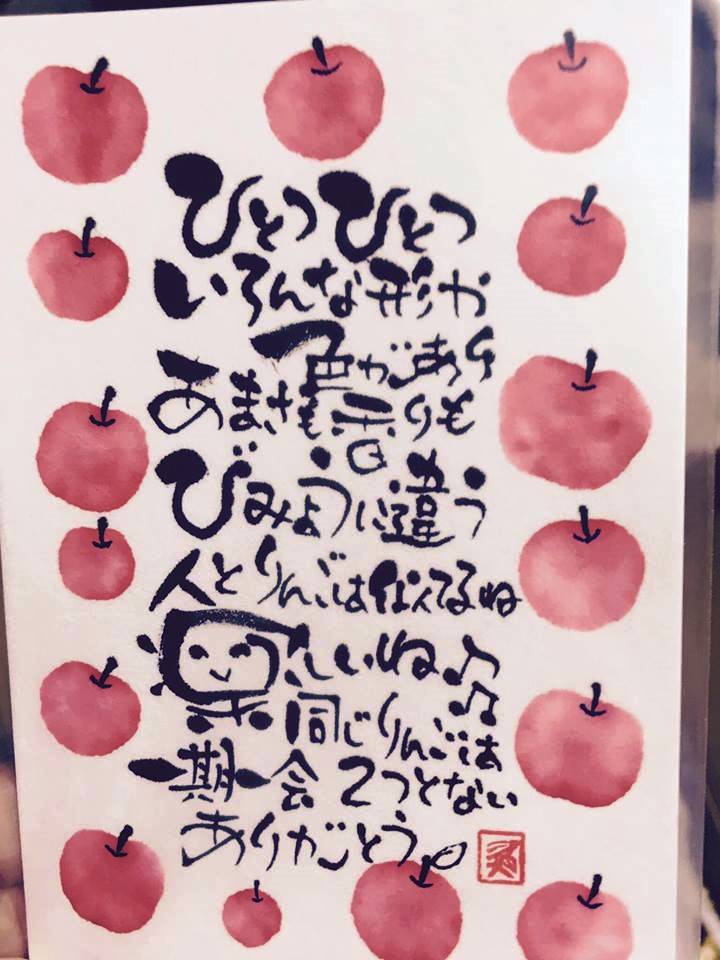 ひとつひとつ
いろんな形や
色があり
あまさも香りも
びみょうに違う
人とりんごは似てるね
楽しいね♪
同じりんごは♫
一期一会 2つとない
ありがとう。